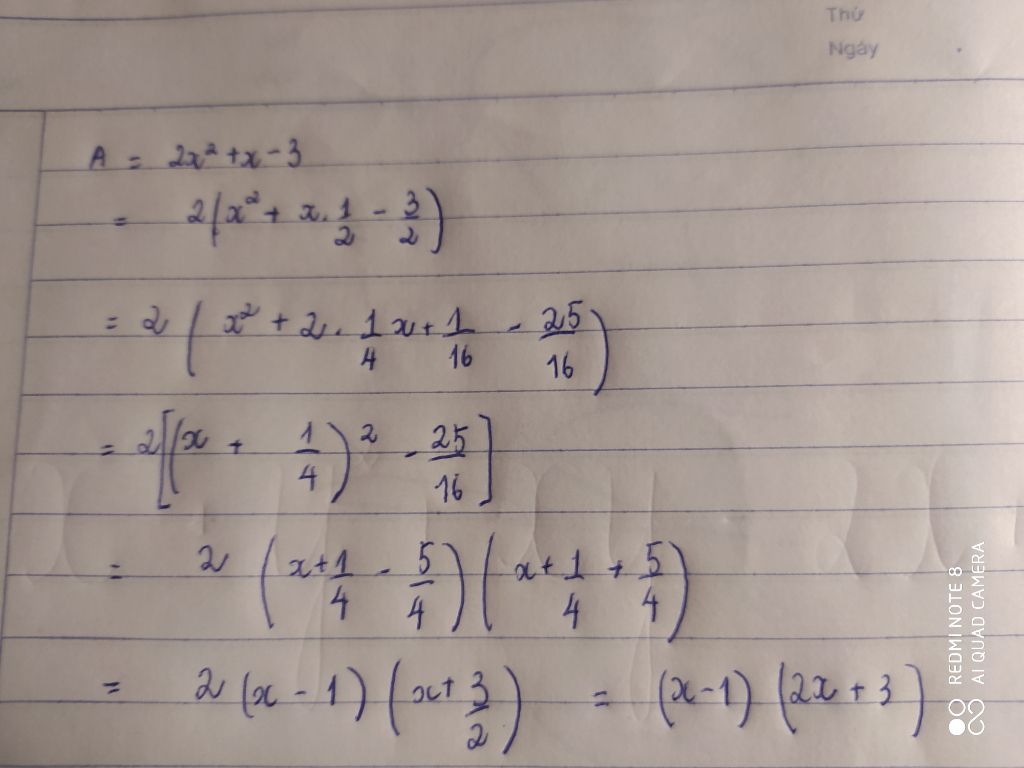 Thứ
Ngày
A = 2x² + x - 3
= 2(x² + x.1/2 - 3/2)
= 2(x² + 2.1/4x + 1/16 - 25/16)
= 2[(x + 1/4)² - 25/16]
= 2(x + 1/4 - 5/4)(x + 1/4 + 5/4)
= 2(x - 1)(x + 3/2) = (x - 1)(2x + 3)
REDMI NOTE 8
AI QUAD CAMERA